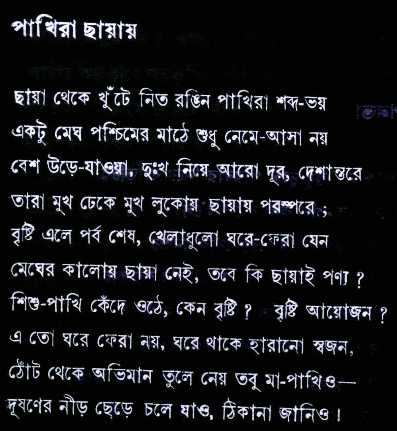 পাখিরা ছায়ায়
ছায়া থেকে খুঁটে নিত রঙিন পাখিরা শব্দ-ভয়
একটু মেঘ পশ্চিমের মাঠে শুধু নেমে-আসা নয়
বেশ উড়ে-যাওয়া, দুঃখ নিয়ে আরো দূর, দেশান্তরে
তারা মুখ ঢেকে মুখ লুকোয় ছায়ায় পরস্পরে ;
বৃষ্টি এলে পর্ব শেষ, খেলাধুলো ঘরে-ফেরা যেন
মেঘের কালোয় ছায়া নেই, তবে কি ছায়াই পণ্য ?
শিশু-পাখি কেঁদে ওঠে, কেন বৃষ্টি ? বৃষ্টি আয়োজন ?
এ তো ঘরে ফেরা নয়, ঘরে থাকে হারানো স্বজন,
ঠোঁট থেকে অভিমান তুলে নেয় তবু মা-পাখিও—
দূষণের নীড় ছেড়ে চলে যাও, ঠিকানা জানিও !